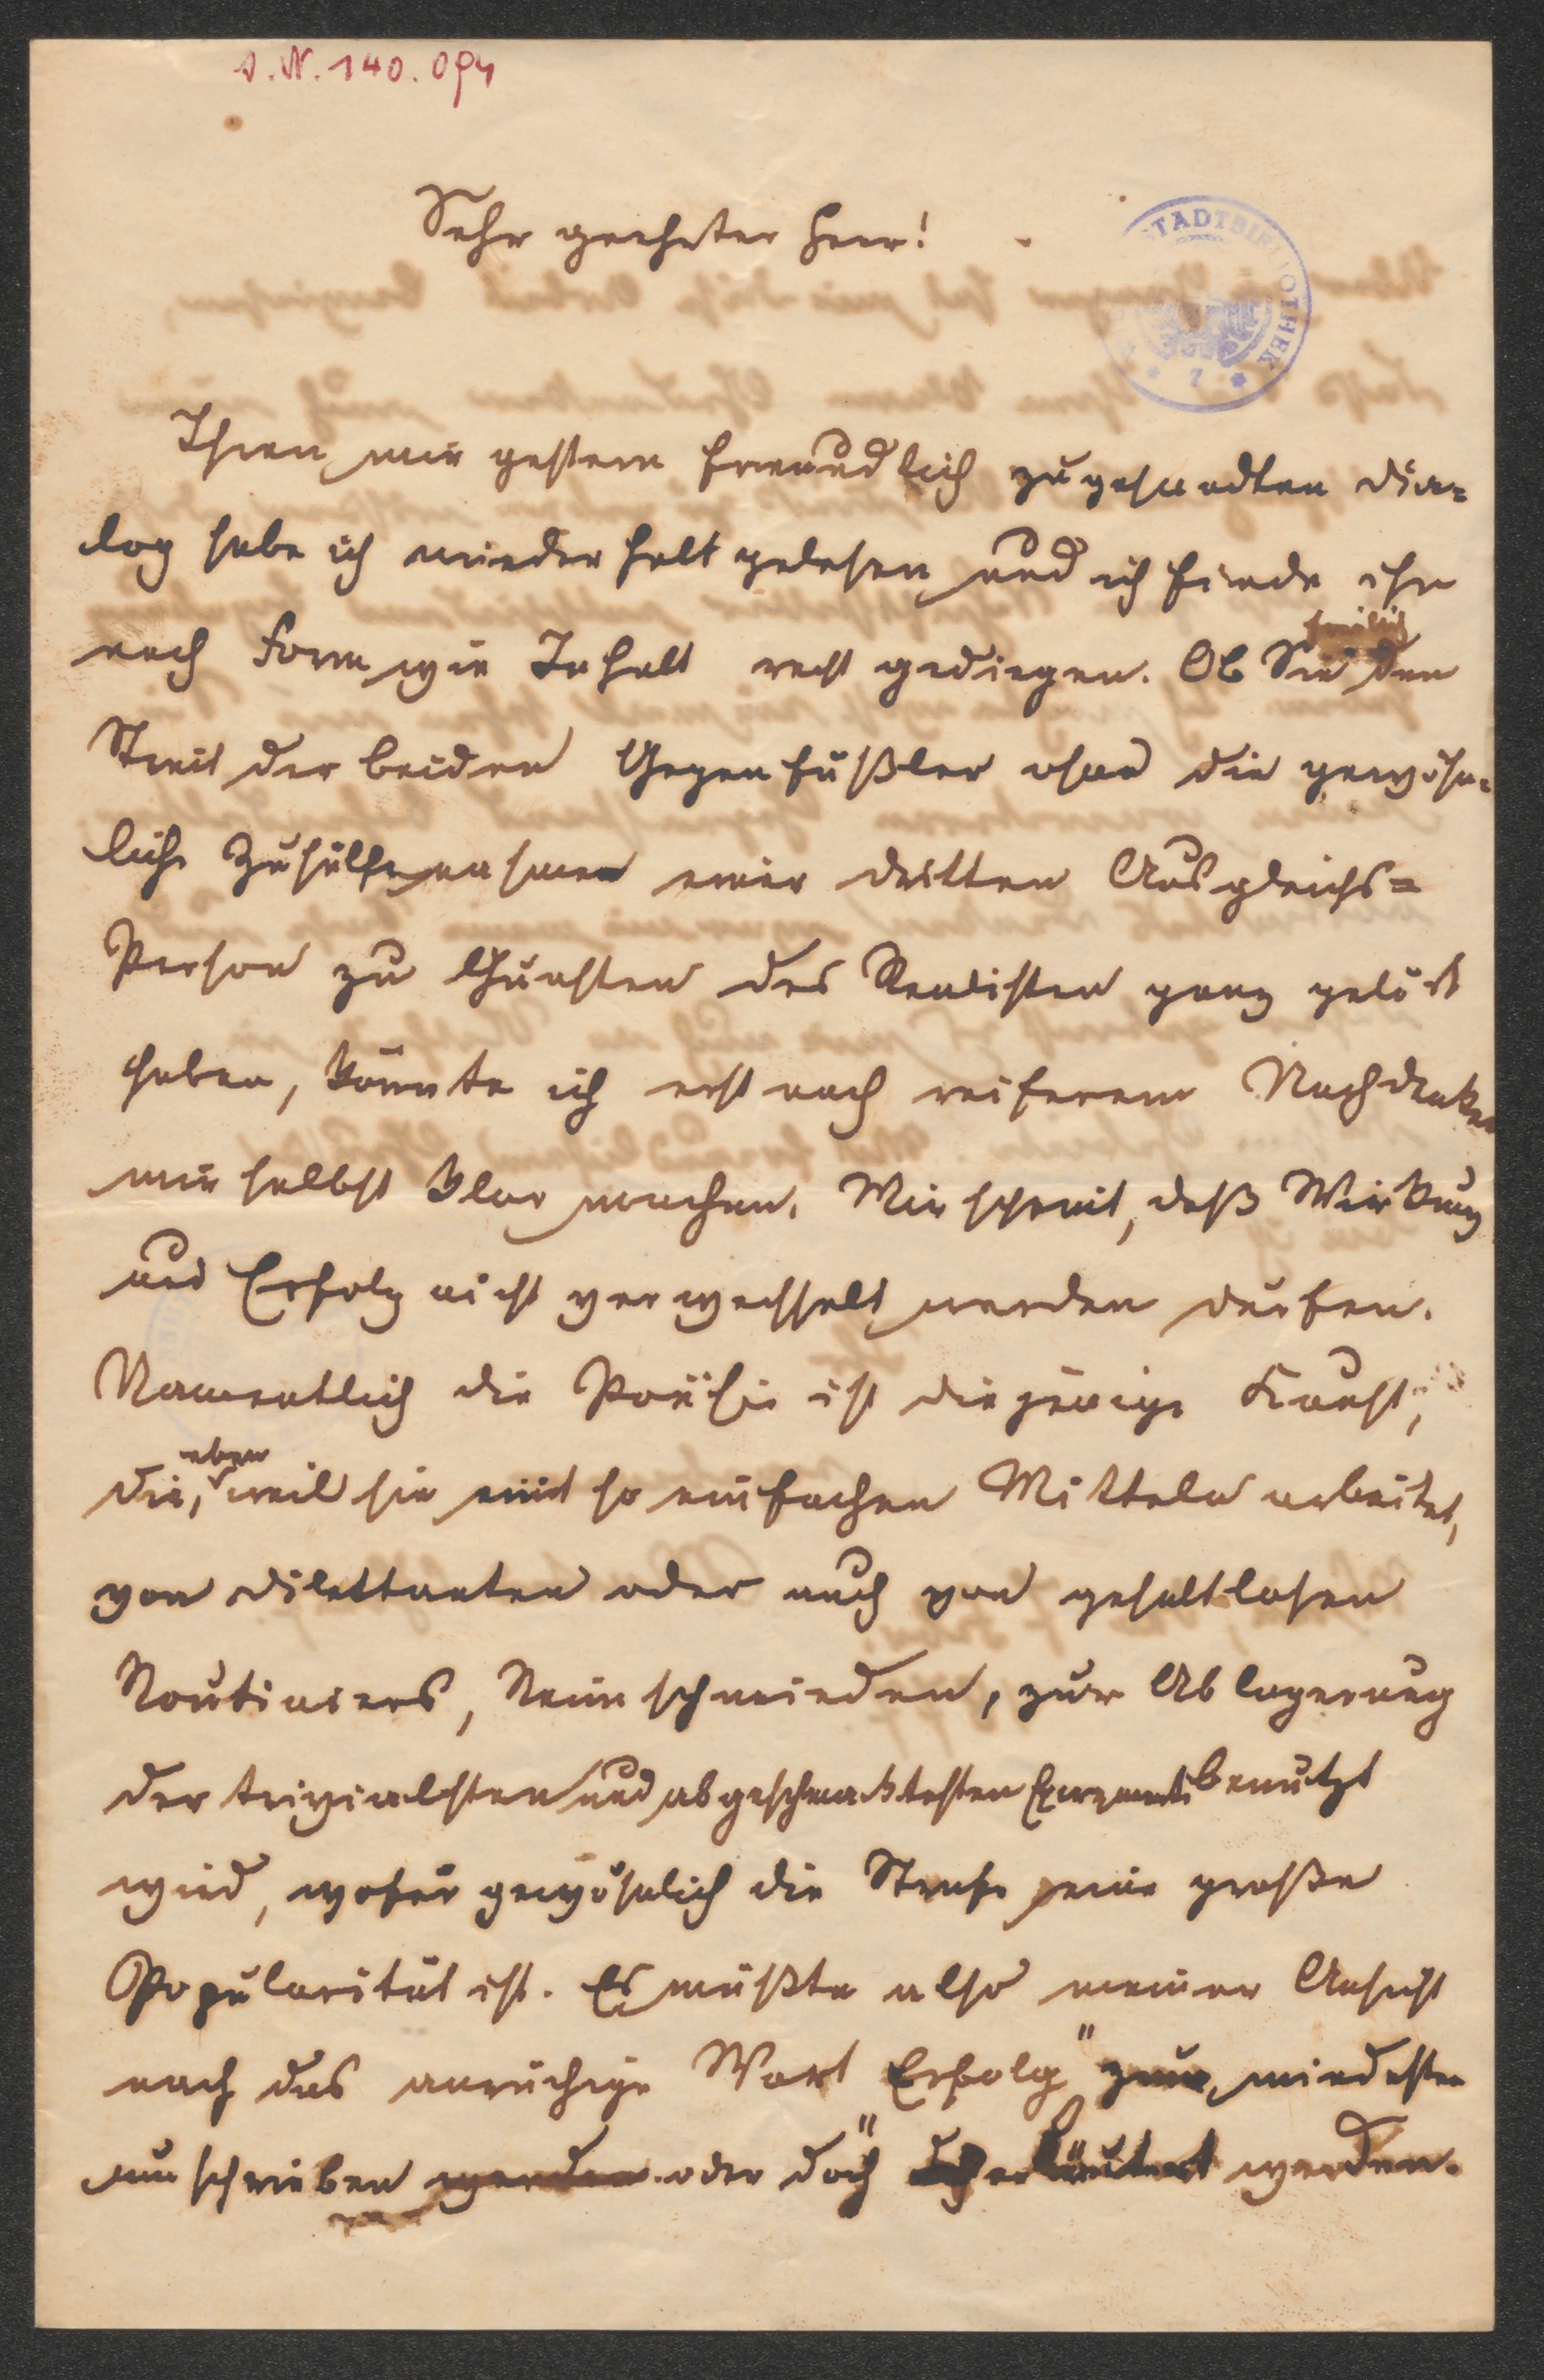 I.N. 140.094
Sehr geehrter Herr!
STADTBIBLIOTHEK
* 7 *
Ihren mir gestern freundlich zugesandten Dia=
log habe ich wiederholt gelesen und ich finde ihn
nach Form wie Inhalt recht gediegen. Ob Sie freilich den
Streit der beiden Gegenfüßler ohne die gewöhn=
liche Zuhülfenahme einer dritten Ausgleichs=
Person zu Gunsten des Realisten ganz gelöst
haben, könnte ich erst nach reiferem Nachdenken
mir selbst klar machen. Mir scheint, daß Wirkung
und Erfolg nicht verwechselt werden dürfen.
Namentlich die Poësie ist diejenige Kunst,
die, eben weil sie mit so einfachen Mitteln arbeitet,
von Dilettanten oder auch von gehaltlosen
Routiniers, Reimschmieden, zur Ablagerung
der trivialsten und abgeschmacktesten Excremente benutzt
wird, wofür gewöhnlich die Strafe eine große
Popularität ist. Es müßte also meiner Ansicht
nach das anrüchige Wort "Erfolg" zum mindesten
umschrieben werden oder doch erläutert werden.